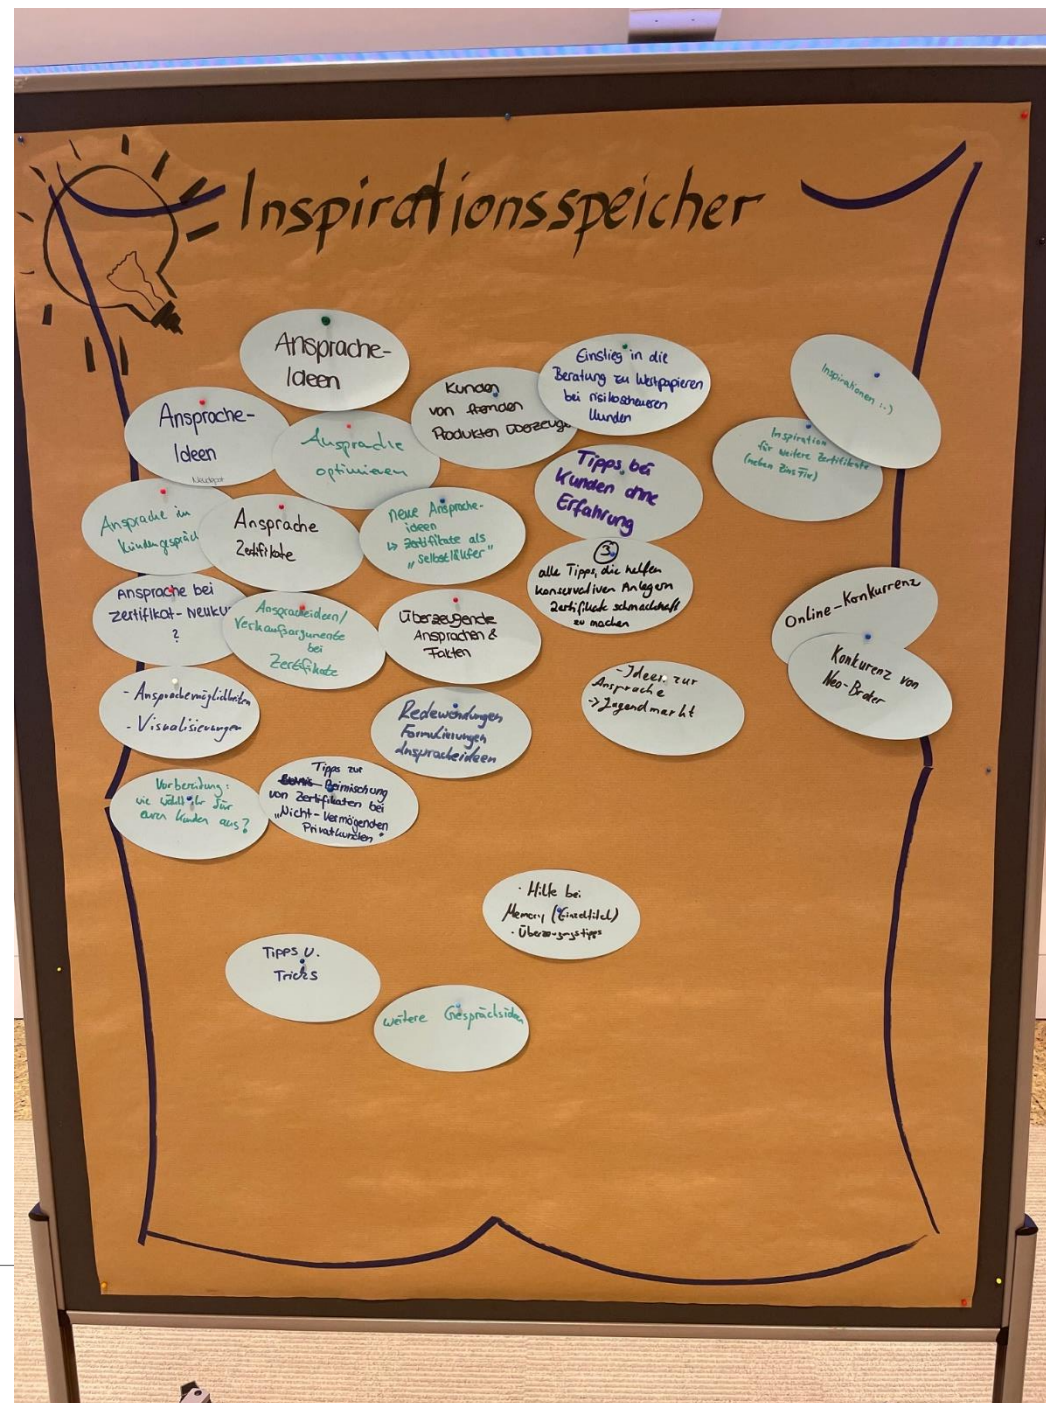 Inspirationsspeicher
Ansprache-
Ideen
Ansprache-
Ideen
Ansprache
optimieren
Kunden
von fremden
Produkten überzeuge
Einstieg in die
Beratung zu Wertpapieren
bei risikoscheueren
Kunden
Inspirationen :-)
Inspiration
für weitere Zertifikate
(neben ZinsFix)
Tipps bei
Kunden ohne
Erfahrung
Ansprache im
Kundengespräch
Ansprache
Zertifikate
neue Ansprache-
ideen
↳ Zertifikate als
„Selbstläufer"
3
alle Tipps, die helfen
konservativen Anlegern
Zertifikate schmackhaft
zu machen
Ansprache bei
Zertifikat-Neuku
?
Anspracheideen/
Verkaufsargumente
bei
Zertifikate
Überzeugende
Ansprachen &
Fakten
Online-Konkurrenz
Konkurenz von
Neo-Broker
- Ansprachemöglichkeiten
- Visualisierungen
Redewendungen
Formulierungen
Anspracheideen
- Ideen zur
Ansprache
-> Jugendmarkt
Vorbereitung:
wie wählt ihr für
euren Kunden aus?
Tipps zur
Beimischung
von Zertifikaten bei
„Nicht-Vermögenden
Privatkunden"
· Hilfe bei
Memory (Einzeltitel)
· Überzeugungstipps
Tipps u.
Tricks
weitere Gesprächsideen